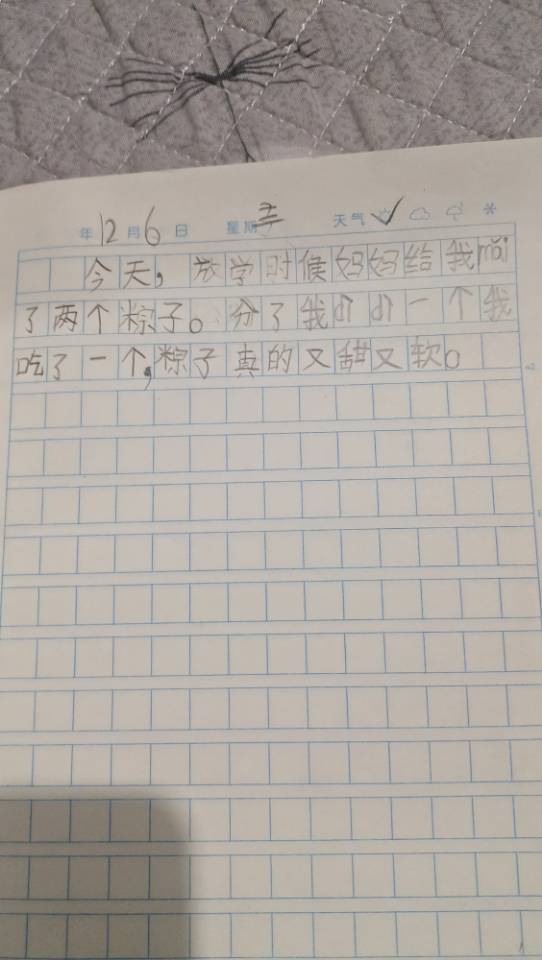 年12月6日 星期三 天气
今天，放学时候妈妈给我mǎi
了两个粽子。分了我dì di一个我
吃了一个，粽子真的又甜又软。